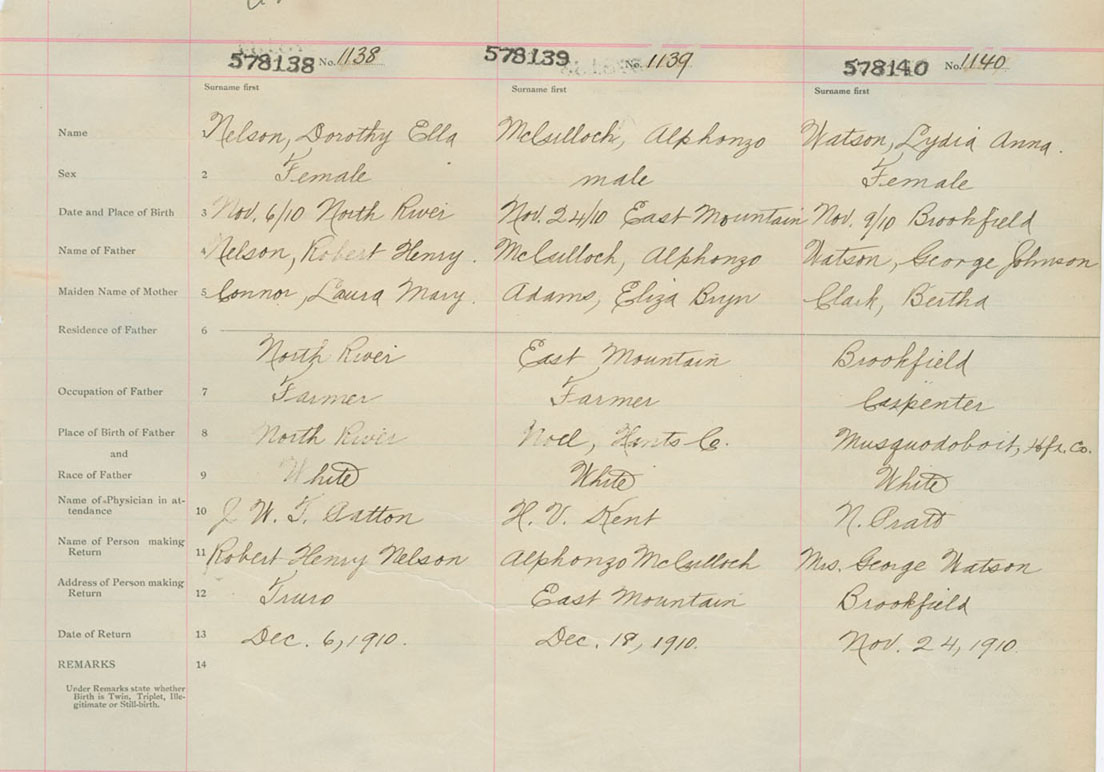 578138 No. 1138 578139 No. 1139 578140 No. 1140
Surname first Surname first Surname first
Name Nelson, Dorothy Ella McCulloch, Alphonzo Watson, Lydia Anna.
Sex 2 Female male Female
Date and Place of Birth 3 Nov. 6/10 North River Nov. 24/10 East Mountain Nov. 9/10 Brookfield
Name of Father 4 Nelson, Robert Henry. McCulloch, Alphonzo Watson, George Johnson
Maiden Name of Mother 5 Connor, Laura Mary. Adams, Eliza Clark, Bertha
Residence of Father 6
North River East Mountain Brookfield
Occupation of Father 7 Farmer Farmer Carpenter
Place of Birth of Father 8 North River Noel, Hants Co. Musquodoboit, Hfx. Co.
and
Race of Father 9 White White White
Name of Physician in at-
tendance 10 J. W. T. Patton H. V. Kent N. Pratt
Name of Person making
Return 11 Robert Henry Nelson Alphonzo McCulloch Mrs. George Watson
Address of Person making
Return 12 Truro East Mountain Brookfield
Date of Return 13 Dec. 6, 1910. Dec. 18, 1910. Nov. 24, 1910.
REMARKS 14
Under Remarks state whether
Birth is Twin, Triplet, Ille-
gitimate or Still-birth.